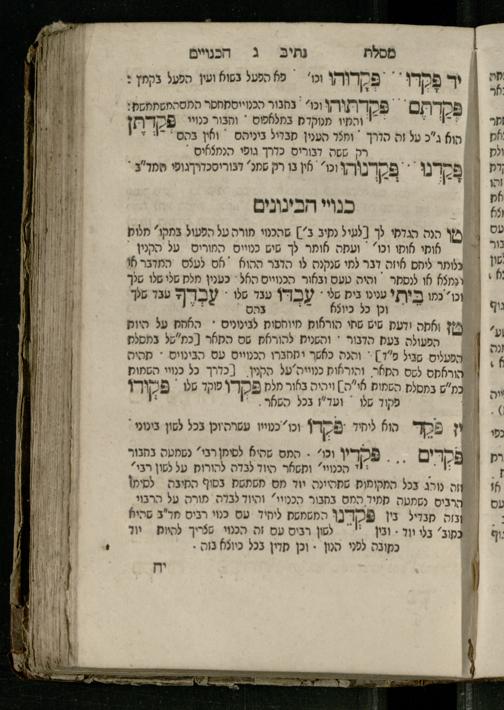 מסלת נתיב ג הכנויים
יד פָּקְדוּ ׳ ׳ ׳ פְּקָדוּהוּ וכו׳ ׳ פא הפעל בשוא ועין הפעל בקמץ :
פְּקַדְתֶּם ׳ ׳ פְּקַדְתּוּהוּ וכו׳ ׳ בחבור הכנויים תחסר המם המשמשת :
והתיו מנוקדת במלאפום ׳ וחבור כנויי פְּקַדְתֶּן
הוא ג״כ על זה הדרך ׳ ומלד הענין תבדיל ביניהם ׳ ואין בהם
רק ששה דבורים כדרך גופי הנמצאים ׳
פָּקַדְנוּ ׳ ׳ פְּקַדְנוּהוּ וכו׳ אין בו רק שמנ׳ דבורים כדרך גופי המד״ב ׳
כנויי הבינונים
טו הנה הגדתי לך [לעיל נתיב ב׳] שהכנוי מורה על הפעול במקו׳ מלות
אותי אותו וכו׳ ׳ ועתה אומר לך שיש כנויים המורים ׳ על הקנין ׳
כלומר ליחס איזה דבר למי שנקנה לו הדבר ההוא ׳ אם לעלם המדבר או
לנמלא או לנסתר ׳ והיה טעם ובאור הכנויים האל ׳ כענין מלת שלי שלו שלך
וכו׳ כמו בֵּיתִי ענינו בית שלי ׳ עַבְדּוֹ עבד שלו ׳ עַבְדֶּךָ עבד שלך
וכן כל כיולא בהם
טז ואתה ידעת שיש שתי הוראות מיוחסות לבינונים ׳ האחת על היות
הפעולה בעת הדבור ׳ והשנית להוראת שם התאר [כמ״ש במסלת
הפעלים שביל פ״ד] ׳ והנה כאשר יתחברו הכנויים עם הבינונים ׳ תהיה
הוראתם לשם התאר, והוראת כנוייה׳ על הקנין, [כדרך כל כנויי השמות
כמ״ש במסלת השמות אי״ה] ויהיה באור מלת פֹּקְדוֹ פוקד שלו ׳ פְּקוּדוֹ
פקוד שלו ׳ ועד״ז בכל השאר.
יז פֹּקֵד הוא ליחיד ׳ פֹּקְדוֹ וכו׳ כנוייו עשרה וכן בכל לשון בינוני ׳
פֹּקְדִים . . . פֹּקְדָיו וכו׳ ׳ המם שהיא לסימן רבי׳ נשמעה בחבור
הכנויי׳ ותשאר היוד לבדה להורות על לשון רבי׳
וזה נוהג בכל המקומות שתהיינה יוד מם משמשת בסוף התיבה לסימן
הרבים נשמעה תמיד המם בחבור הכנויי׳ והיוד לבדה מורה על הרבוי ׳
ובזה תבדיל בין פֹּקְדֵנוּ המשמשת ליחיד עם כנוי רבים מד״ב שהיא
כתוב׳ בלי יוד ׳ ובין לשון רבים עם זה הכנוי שלריך להיות יוד
כתובה לפני הנון ׳ וכן תדין בכל כיולא בזה ׳
יח